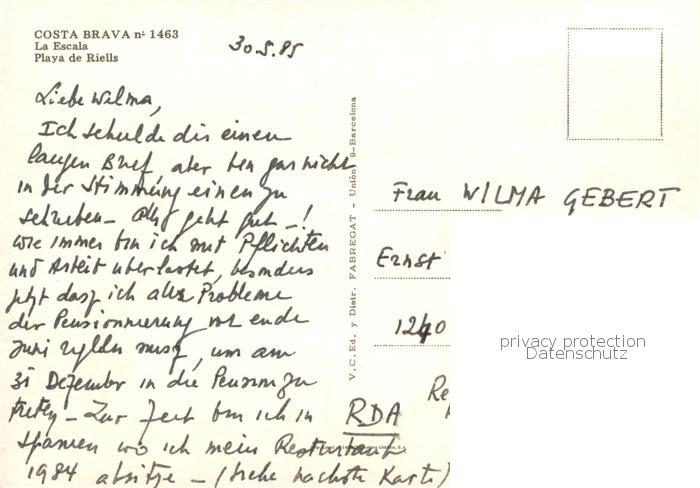 COSTA BRAVA nº 1463
La Escala
Playa de Riells
30.5.85
Liebe Wilma,
Ich schulde dir einen
langen Brief, aber bin gar nicht
in der Stimmung einen zu
schreiben – geht gut –!
wie immer bin ich mit Pflichten
und Arbeit überlastet, besonders
jetzt dass ich alle Probleme
der Pensionierung vor ende
Juni regeln muss, um am
31 Dezember in die Pension zu
treten – Zur Zeit bin ich in
Spanien wo ich mein Resturlaub
1984 absitze – (siehe nächste Karte)
V. C. Ed. y Distr. FABREGAT - Unión 9-Barcelona
Frau WILMA GEBERT
Ernst
1240
RDA
privacy protection
Datenschutz